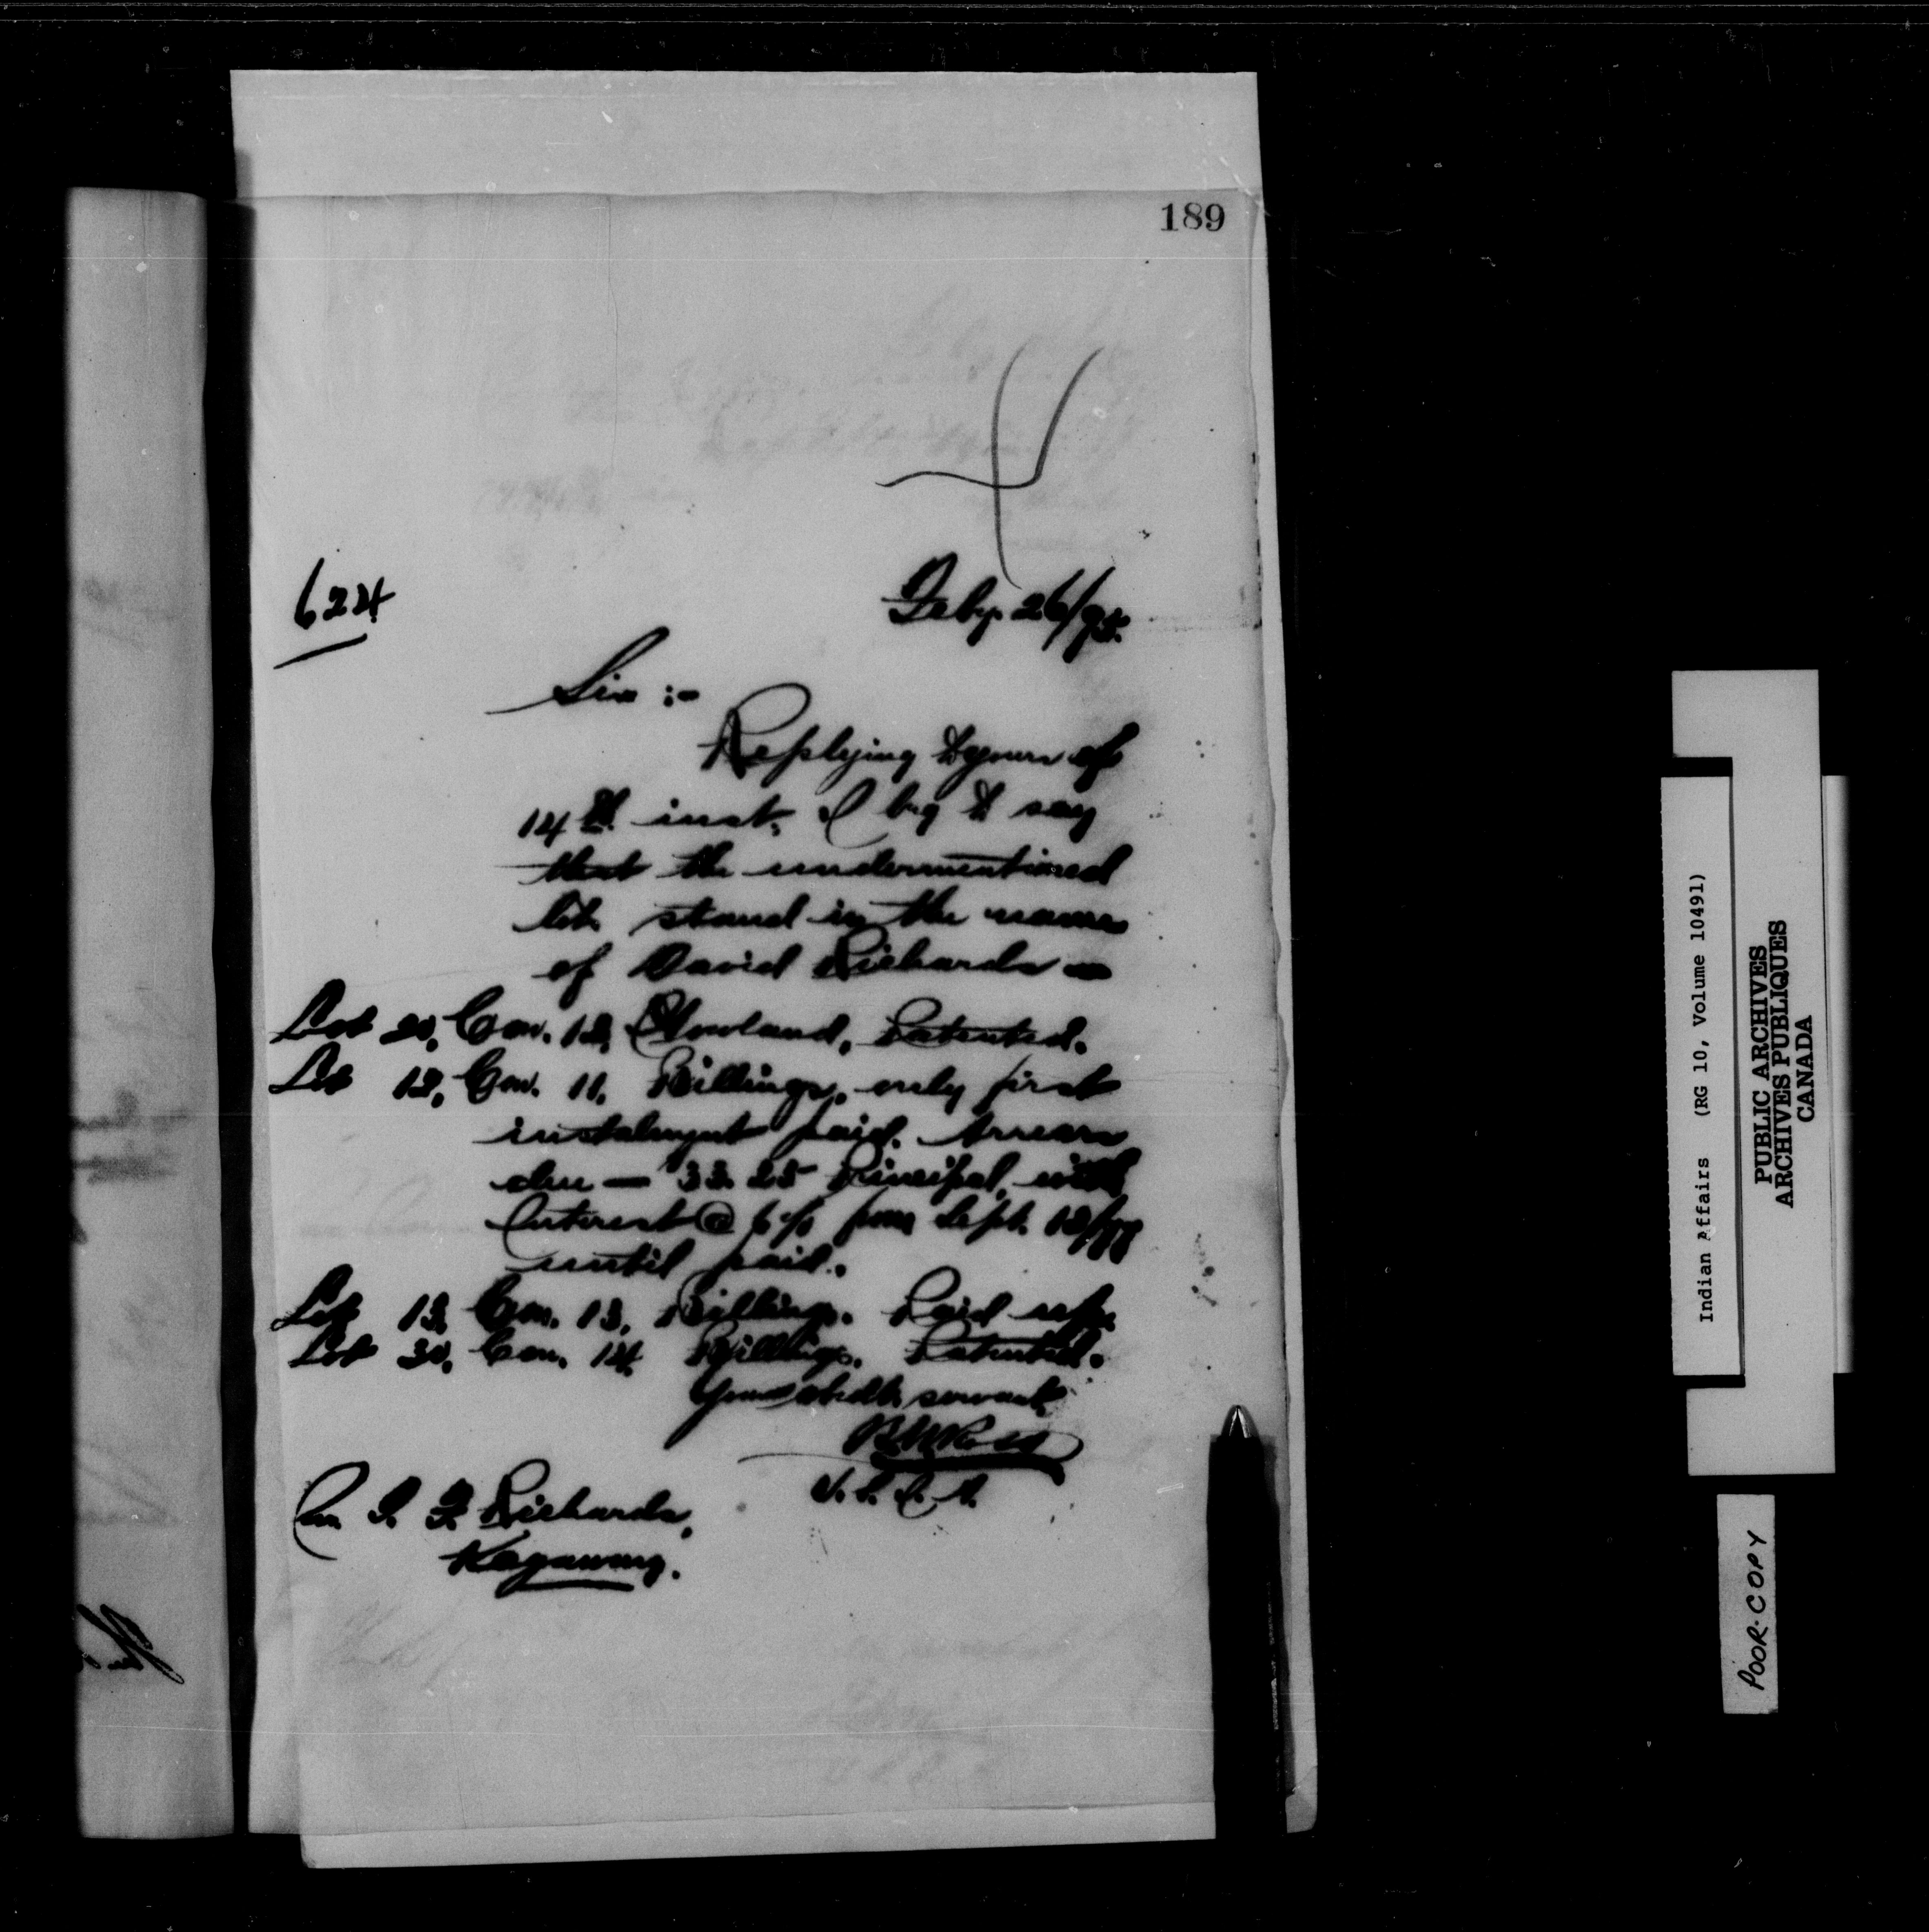 189
624
Feby. 26/95.
Sir :-
Replying to yours of
14th inst. I beg to say
that the undermentioned
lots stand in the name
of David Richards —
Lot 20, Con. 12, Howland, Patented.
Lot 12, Con. 11, Billings, only first
instalment paid. Arrears
due — 33.25 Principal, with
Interest @ 6% from Sept. 12/
until paid.
Lot 13, Con. 13, Billings. Paid up.
Lot 30, Con. 14, Billings. Patented.
Your obedt. servant,
B W Ross
Richards,
Kagawong.
Indian Affairs (RG 10, Volume 10491)
PUBLIC ARCHIVES
ARCHIVES PUBLIQUES
CANADA
POOR COPY